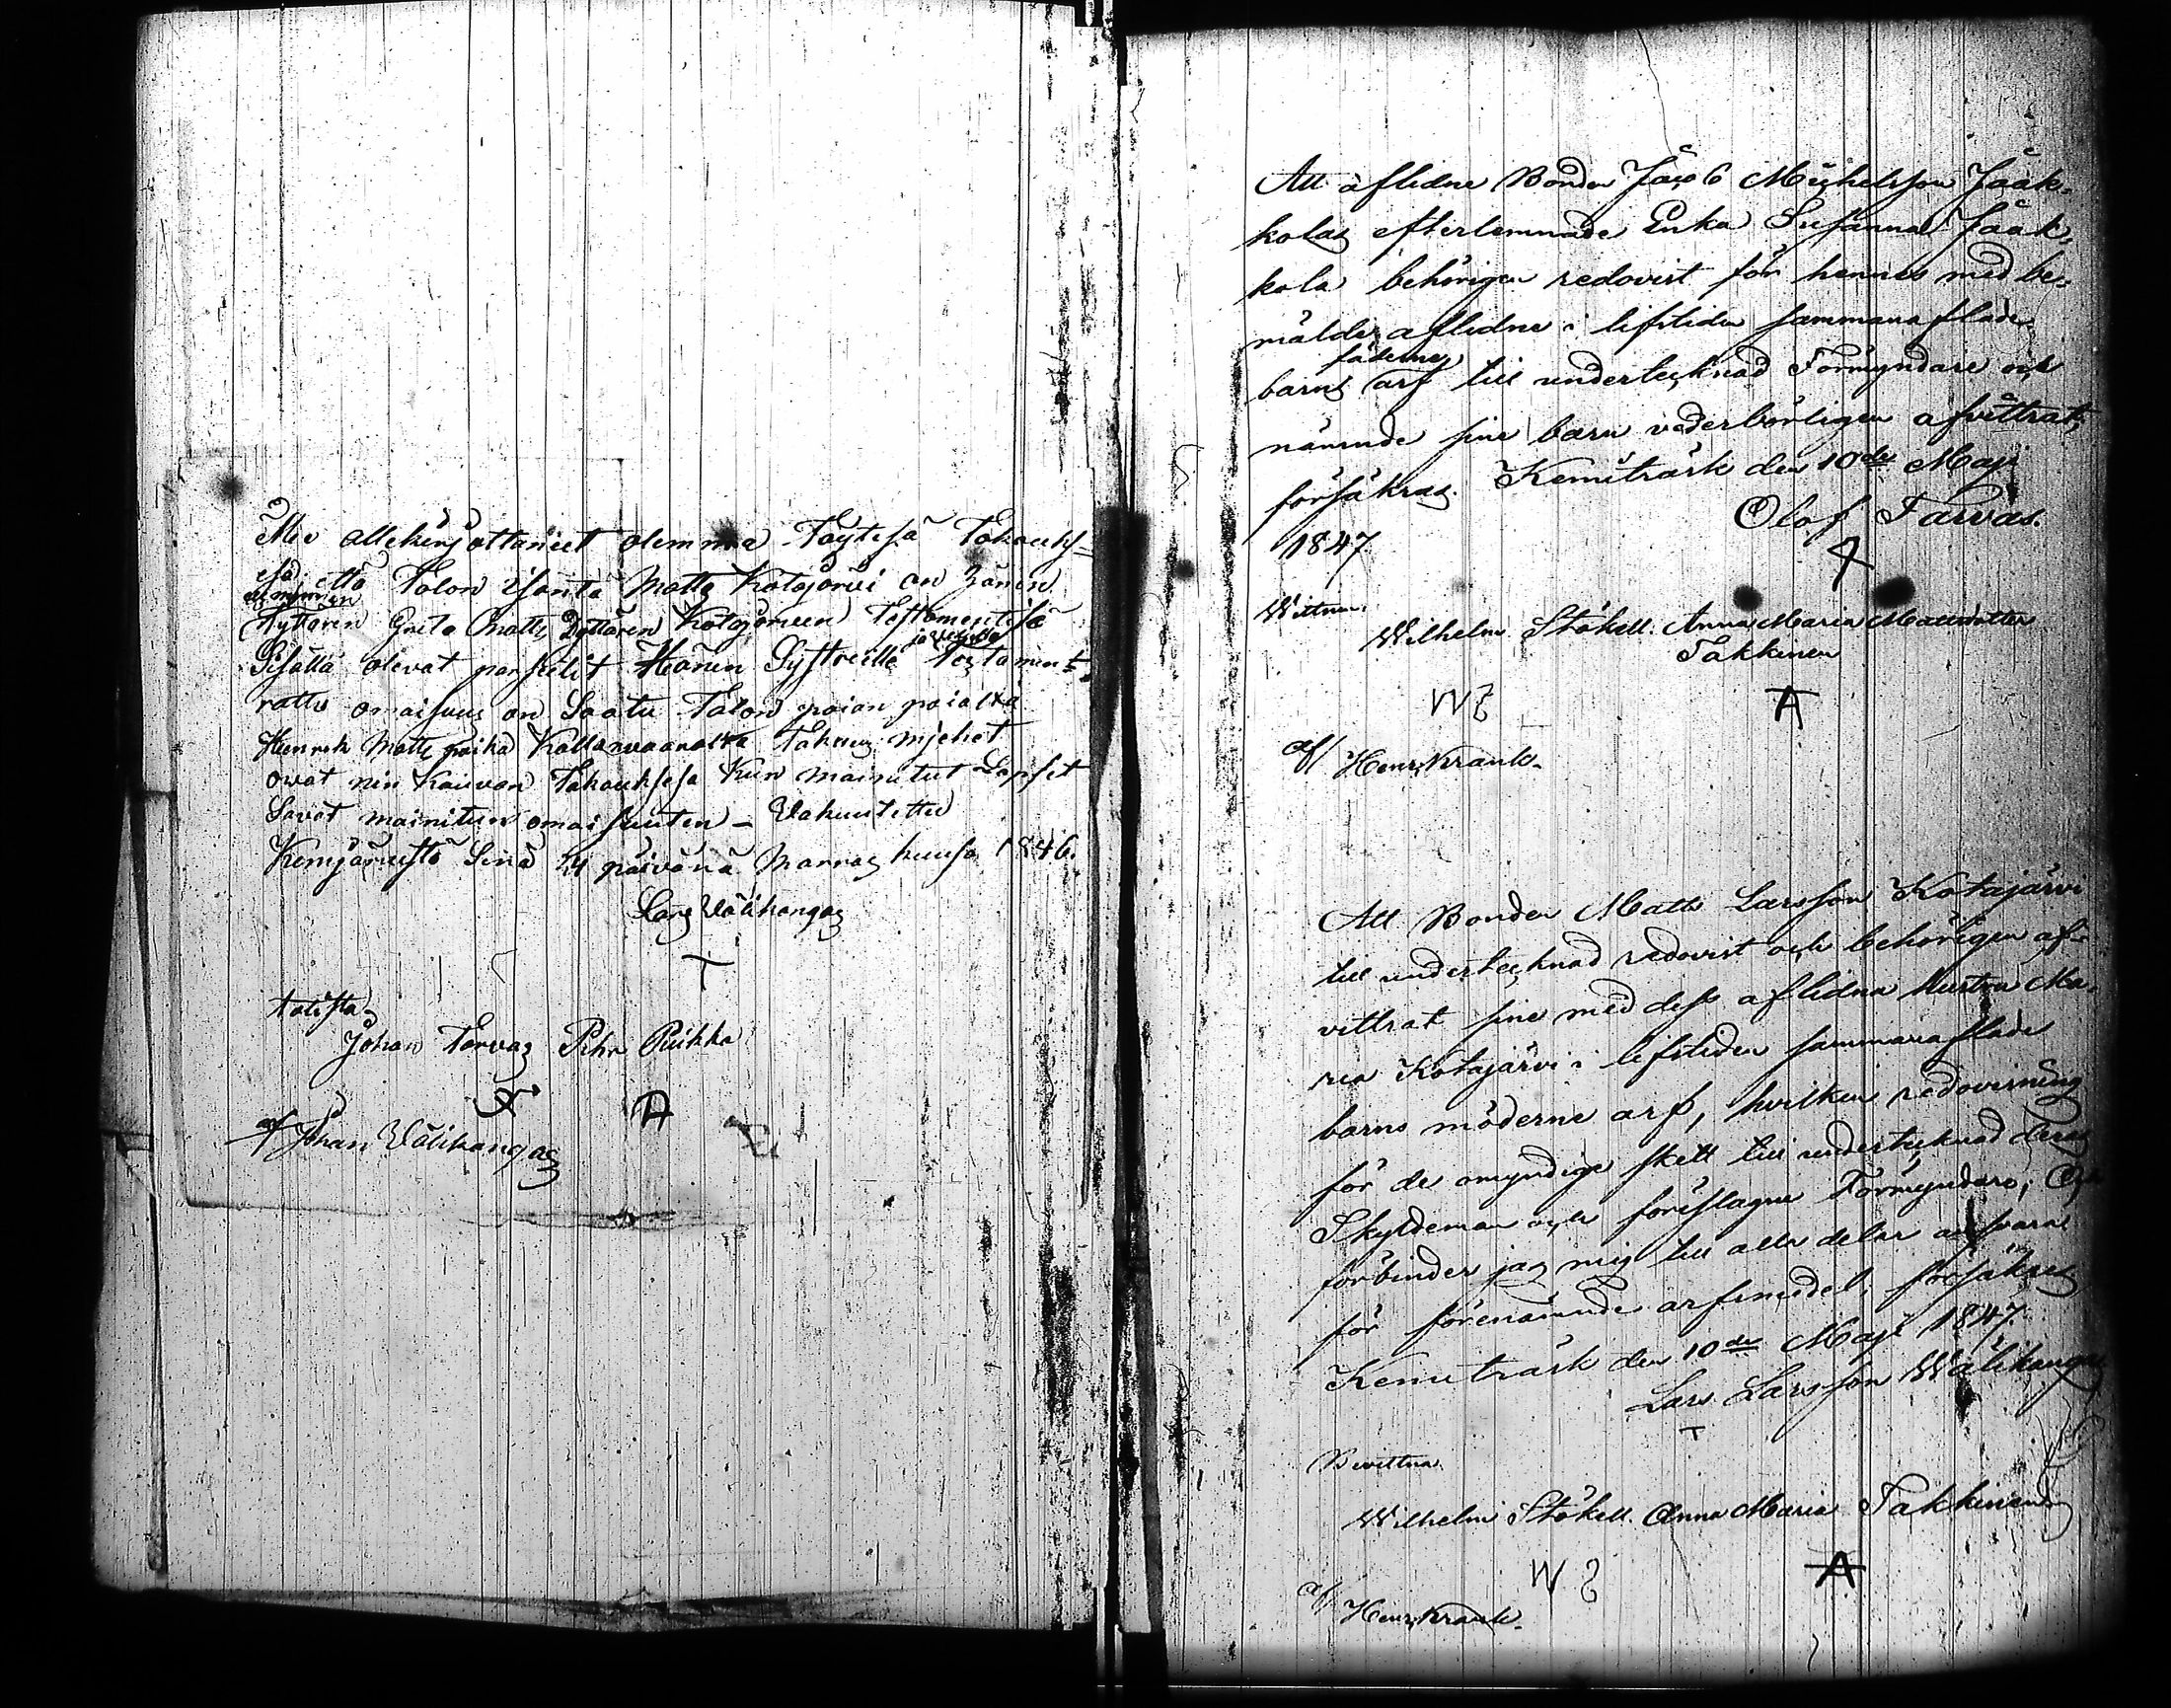 Me allekirjottaneet olemma Täytesä Takauks-
esa että Talon isäntä Matts Kotajärvi on hänen
Tyttären Greta Matts Dyttären Kotajärven Testamentisä
Sisällä olevat parselit Hänen Systreille Testament-
rattu omaisuus on Saatu Talon pojan pojalta
Henrik Matts poika Kallanvaaralta Takaus miehet
ovat nin Kauvan Takauksesa Kun mainitut Lapset
Savat mainitun omaisuuten – Vakuutettu
Kemjärvesta Sinä 24 päivänä Marras kuusa 1846.
Lars Välikangas
T
totista
Johan Tarvas Pehr Puikko
A
af Johan Välikangas
Att aflidne Bonden Jacob Michelsson Jaak-
kolas efterlemnade Enka Susanna Jaak-
kola behörigen redovist för hennes med be-
mälde aflidne i lifstiden sammanaflade
fäderne
barns arf till undertecknad Förmyndare och
nämnde sine barn vederbörligen afvittrat,
försäkras. Kemiträsk den 10de Maji
1847
Olof Tarvas.
Wittna:
Wilhelm Stökell. Anna Maria Mattsdotter
Takkinen
A
af Henr. Krank.
Att Bonden Matts Larsson Kotajärvi
till undertecknad redovist och behörigen af-
vittrat sine med dess aflidna hustru Ma-
ria Kotajärvi i lifstiden sammanaflade
barns möderne arf, hvilken redovisning
för de omyndige skett till undertecknad deras
Skyldeman och föreslagne Förmyndare; Och
förbinder jag mig till alla delar ansvara
för förenämnde arfmedel, försäkras
Kemiträsk den 10de Maji 1847.
Lars Larsson Wälikangas
T
Bevittna
Wilhelm Stökell. Anna Maria Takkinen
A
af Henr. Krank.